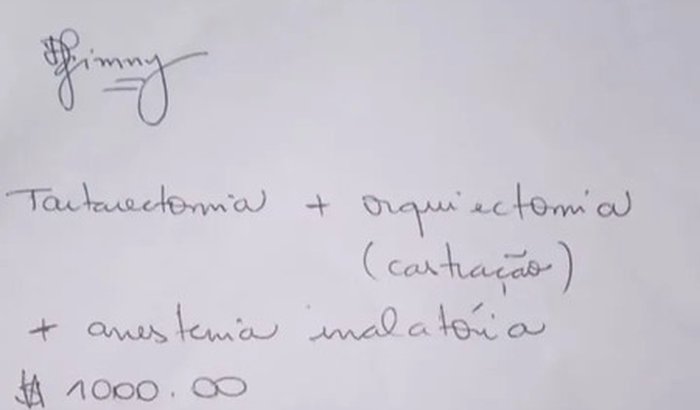 Jimmy
Tartarectomia + orquiectomia
(castração)
+ anestesia inalatória
$ 1000.00